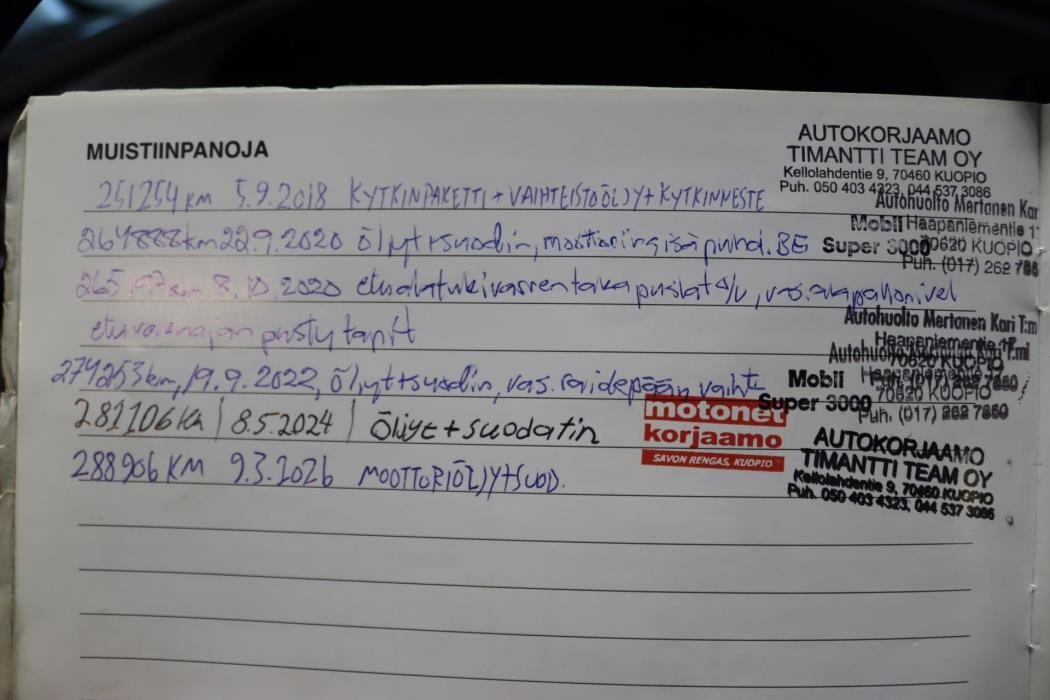 MUISTIINPANOJA
AUTOKORJAAMO
TIMANTTI TEAM OY
Kellolahdentie 9, 70460 KUOPIO
Puh. 050 403 4323, 044 537 3086
251254 KM 5.9.2018 KYTKINPAKETTI + VAIHTEISTOÖLJY + KYTKINNESTE
Autohuolto Mertanen Kari
Mobil Haapaniementie
264888km 22.9.2020 öljyt+suodin, moottorin sisäpuhd. BE
Super 3000 70620 KUOPIO
Puh. (017) 262
8.10.2020 etualatukivarren taka puslat o/v, vas. alapallonivel
Autohuolto Mertanen Kari T:mi
Haapaniementie
Autohuolto
70620 KUOPIO
274253km, 19.9.2022, öljyt+suodin, vas. raidepään vaihto
Mobil
Super 3000
70620 KUOPIO
Puh. (017) 262 7860
281106 Km | 8.5.2024 | Öljyt + suodatin
motonet
korjaamo
SAVON RENGAS, KUOPIO
288906 KM 9.3.2026 MOOTTORIÖLJY+SUOD.
AUTOKORJAAMO
TIMANTTI TEAM OY
Kellolahdentie 9, 70460 KUOPIO
Puh. 050 403 4323, 044 537 3086